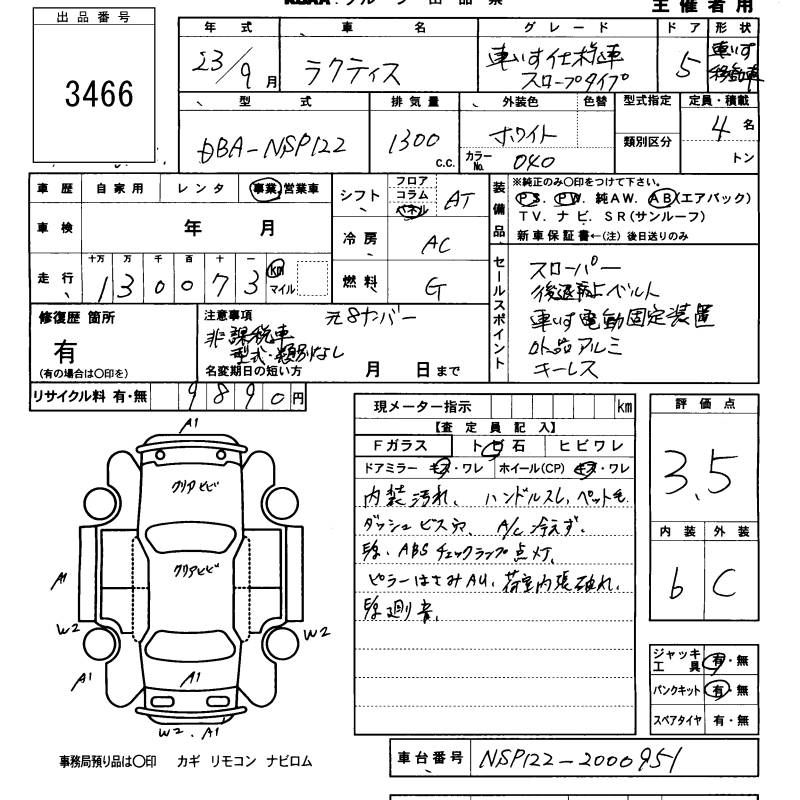 主催者用
出品番号
3466
年式 車名 グレード ドア 形状
23/9月 ラクティス 車いす仕様車 スロープタイプ 5 車いす移動車
型式 排気量 外装色 色替 型式指定 定員・積載
DBA-NSP122 1300 c.c. ホワイト 類別区分 4名
カラーNo. 040 トン
車歴 自家用 レンタ 事業 営業車
車検 年 月
走行 十万 万 千 百 十 一 km マイル
1 3 0 0 7 3
シフト フロア コラム パネル AT
冷房 AC
燃料 G
装備品
※純正のみ〇印をつけて下さい。
PS. PW. 純AW. AB(エアバック)
TV. ナビ. SR(サンルーフ)
新車保証書←(注) 後日送りのみ
セールスポイント
スローパー
後退防止ベルト
車いす電動固定装置
外品アルミ
キーレス
修復歴 箇所
有
(有の場合は〇印を)
注意事項 元8ナバー
非課税車
型式・類別なし
名変期日の短い方 月 日まで
リサイクル料 有・無 9890円
現メーター指示 km
【査定員記入】
Fガラス トビ石 ヒビワレ
ドアミラー キズ・ワレ ホイール(CP) キズ・ワレ
内装汚れ、ハンドルスレ、ペット毛
ダッシュビス穴、A/C冷えず、
ABSチェックランプ点灯、
ピラーはさみAU、荷室内張破れ、
評価点
3.5
内装 外装
b C
ジャッキ 工具 有・無
パンクキット 有・無
スペアタイヤ 有・無
A1
クリアヒビ
クリアヒビ
A1
W2 W2
A1 A1
W2.A1
事務局預り品は〇印 カギ リモコン ナビロム
車台番号 NSP122-2000951